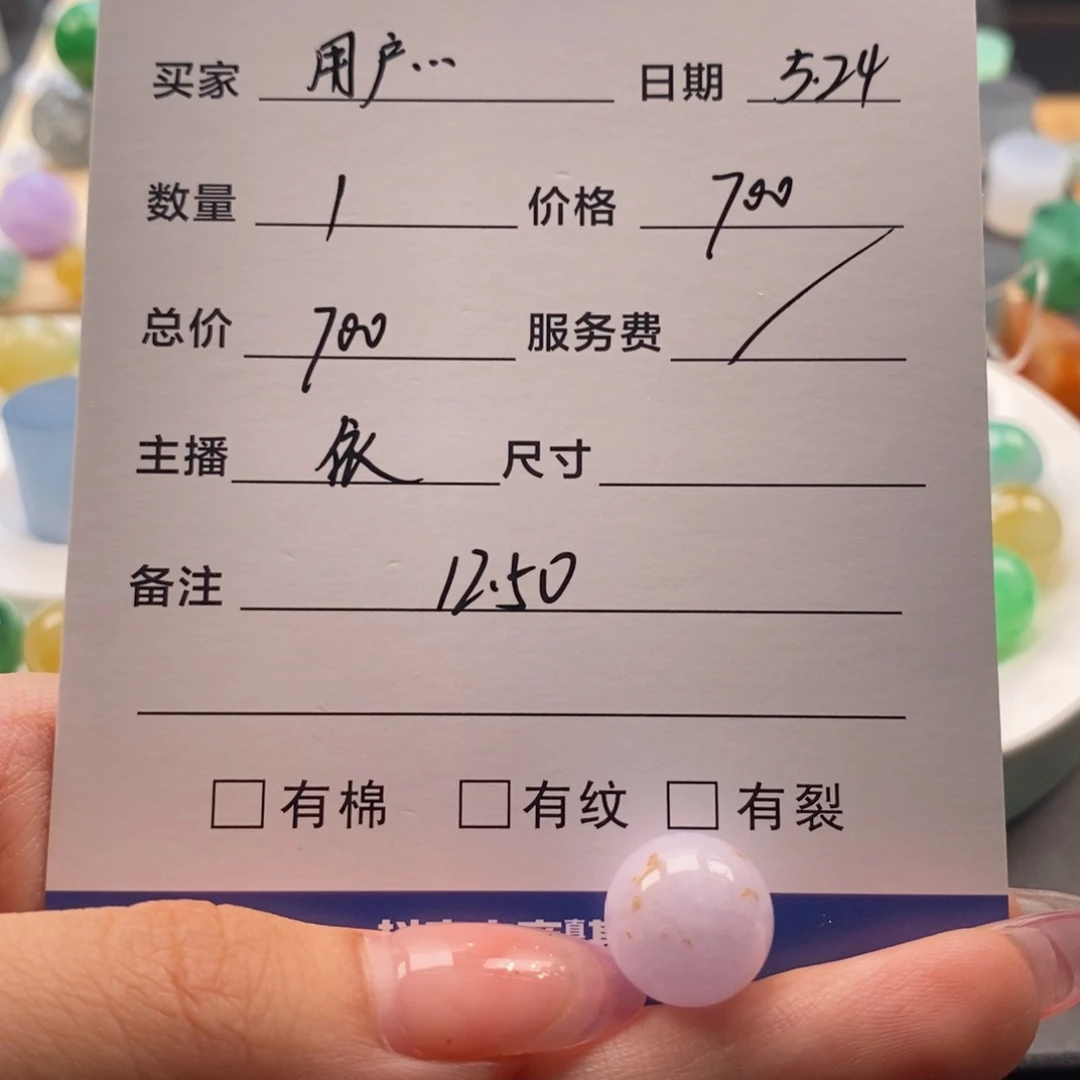 买家 用户... 日期 5.24
数量 1 价格 700
总价 700 服务费 /
主播 依 尺寸
备注 12.50
□有棉 □有纹 □有裂